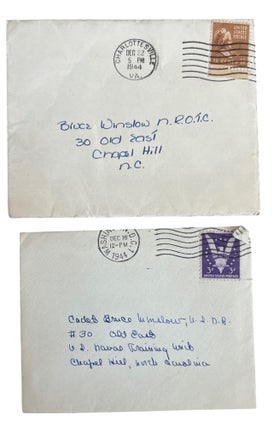 CHARLOTTESVILLE
DEC 22
5 PM
1944
VA.
UNITED STATES POSTAGE
Bruce Winslow N.R.O.T.C.
30 Old East
Chapel Hill
N.C.
WASHINGTON, D.C. 1
DEC
12-PM
1944
3¢ 3¢
UNITED STATES POSTAGE
Cadet Bruce Winslow, U.S.N.R.
#30 Old East
U.S. Naval Training Unit
Chapel Hill, North Carolina